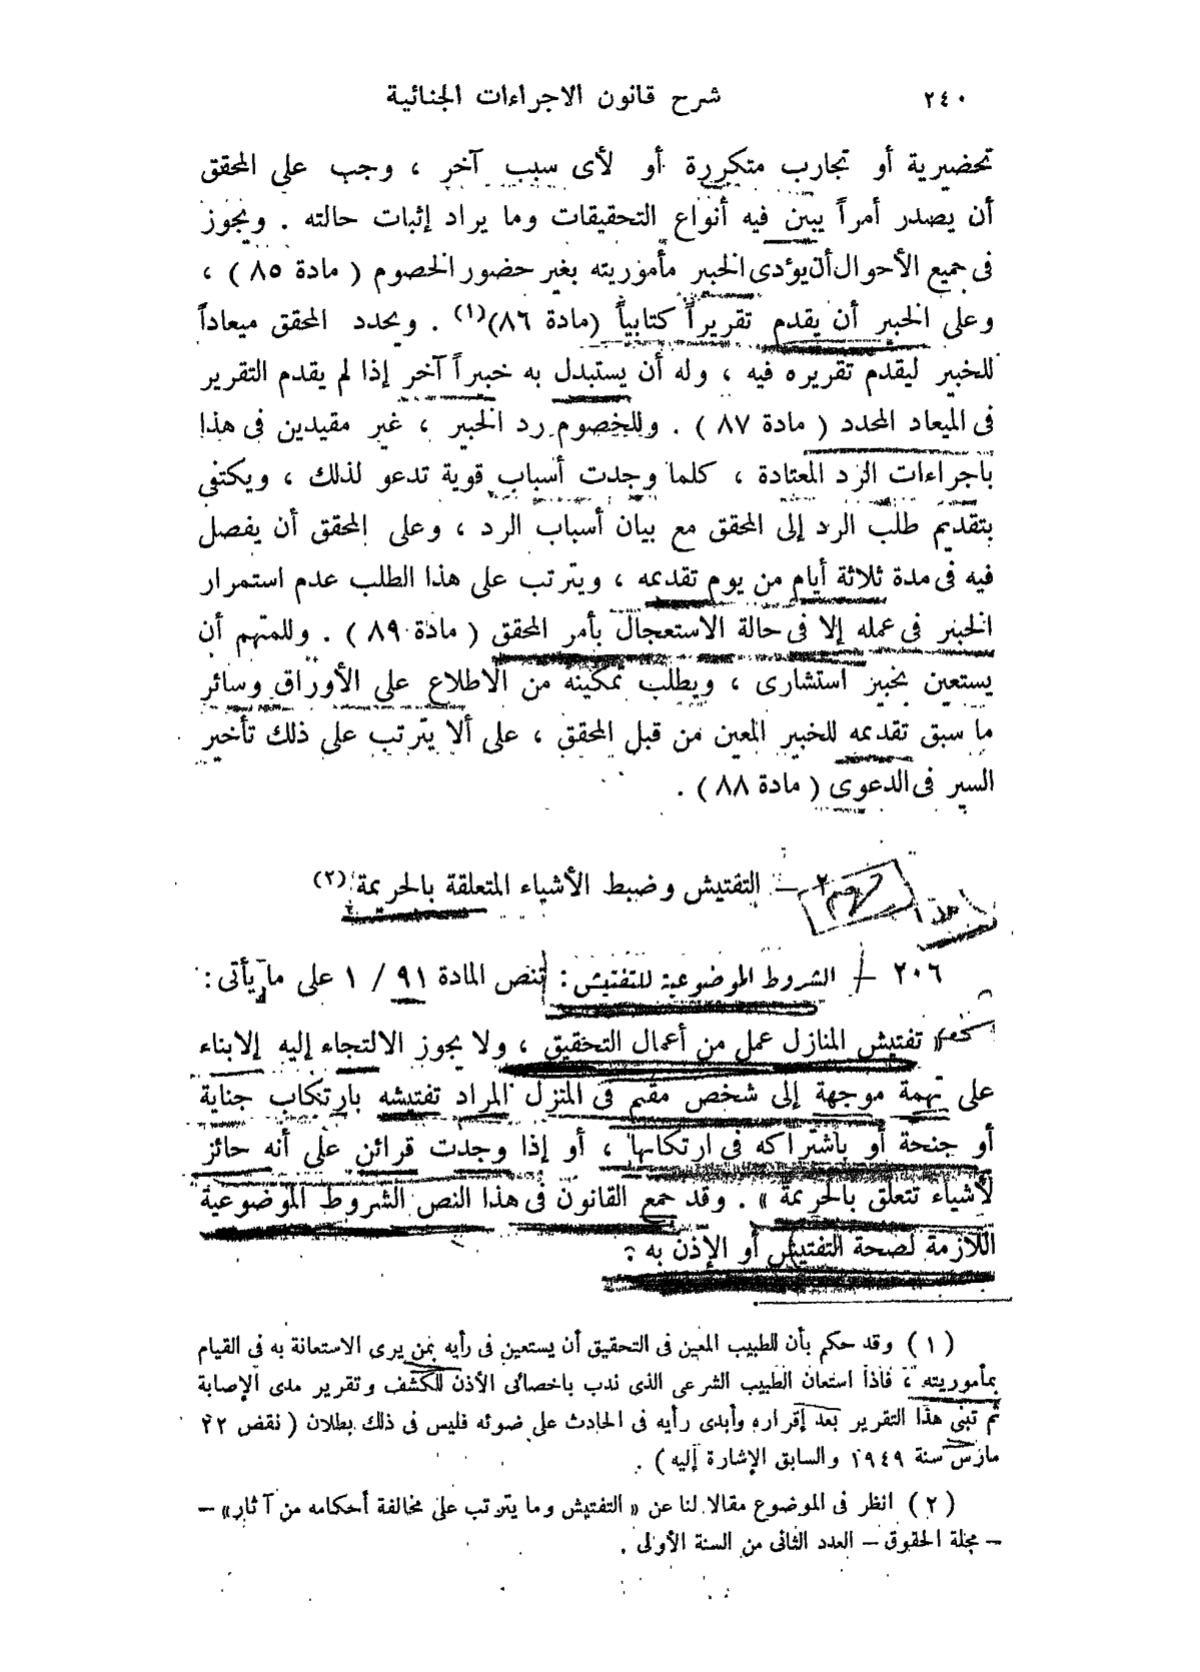 ٢٤٠ شرح قانون الاجراءات الجنائية
تحضيرية أو تجارب متكررة أو لأى سبب آخر ، وجب على المحقق
أن يصدر أمراً يبين فيه أنواع التحقيقات وما يراد إثبات حالته . ويجوز
فى جميع الأحوال أن يؤدى الخبير مأموريته بغير حضور الخصوم ( مادة ٨٥ ) ،
وعلى الخبير أن يقدم تقريراً كتابياً (مادة ٨٦)(١) . ويحدد المحقق ميعاداً
للخبير ليقدم تقريره فيه ، وله أن يستبدل به خبيراً آخر إذا لم يقدم التقرير
فى الميعاد المحدد ( مادة ٨٧ ) . وللخصوم رد الخبير ، غير مقيدين فى هذا
باجراءات الرد المعتادة ، كلما وجدت أسباب قوية تدعو لذلك ، ويكتفى
بتقديم طلب الرد إلى المحقق مع بيان أسباب الرد ، وعلى المحقق أن يفصل
فيه فى مدة ثلاثة أيام من يوم تقديمه ، ويترتب على هذا الطلب عدم استمرار
الخبير فى عمله إلا فى حالة الاستعجال بأمر المحقق ( مادة ٨٩ ) . وللمتهم أن
يستعين بخبير استشارى ، ويطلب تمكينه من الاطلاع على الأوراق وسائر
ما سبق تقديمه للخبير المعين من قبل المحقق ، على ألا يترتب على ذلك تأخير
السير فى الدعوى ( مادة ٨٨ ) .
٢ – التفتيش وضبط الأشياء المتعلقة بالجريمة (٢)
مهم
هذا
٢٠٦ – الشروط الموضوعية للتفتيش : تنص المادة ٩١ / ١ على ما يأتى :
« تفتيش المنازل عمل من أعمال التحقيق ، ولا يجوز الالتجاء إليه إلا بناء
على تهمة موجهة إلى شخص مقيم فى المنزل المراد تفتيشه بارتكاب جناية
أو جنحة أو باشتراكه فى ارتكابها ، أو إذا وجدت قرائن على أنه حائز
لأشياء تتعلق بالجريمة » . وقد جمع القانون فى هذا النص الشروط الموضوعية
اللازمة لصحة التفتيش أو الإذن به :
( ١ ) وقد حكم بأن للطبيب المعين فى التحقيق أن يستعين فى رأيه بمن يرى الاستعانة به فى القيام
بمأموريته ، فاذا استعان الطبيب الشرعى الذى ندب باخصائى الأذن للكشف وتقرير مدى الإصابة
ثم تبنى هذا التقرير بعد إقراره وأبدى رأيه فى الحادث على ضوئه فليس فى ذلك بطلان ( نقض ٢٢
مارس سنة ١٩٤٩ والسابق الإشارة إليه ) .
( ٢ ) انظر فى الموضوع مقالا لنا عن « التفتيش وما يترتب على مخالفة أحكامه من آثار» –
– مجلة الحقوق – العدد الثانى من السنة الأولى .